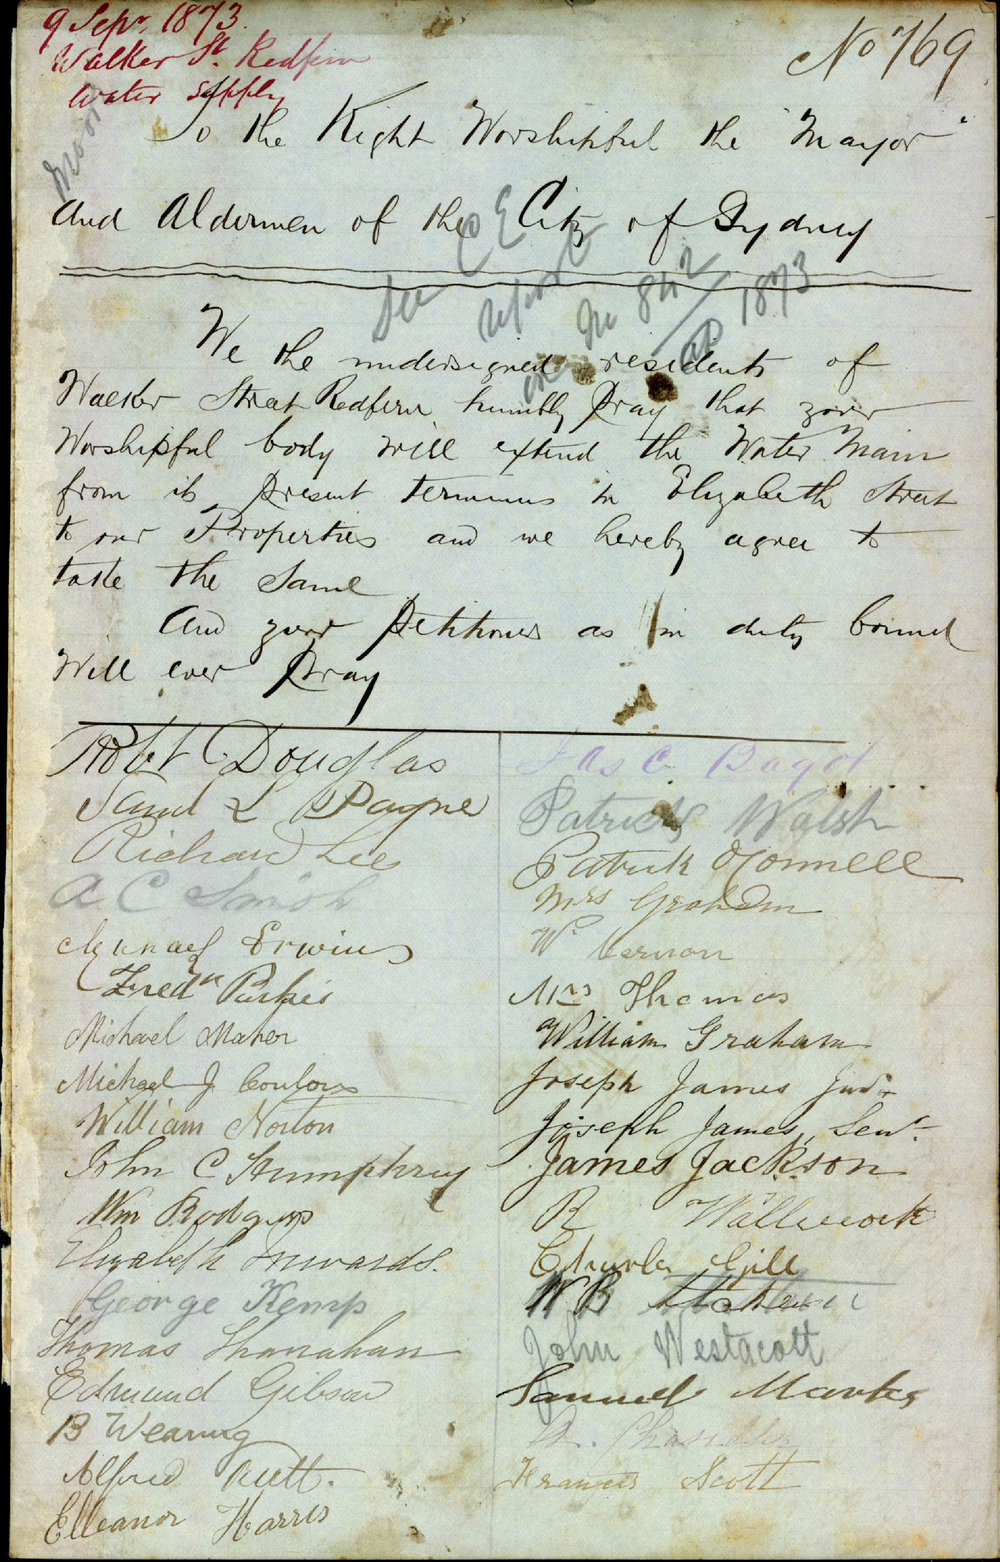 9 Sepr. 1873.
Walker St. Redfern
water supply
No 769
To the Right Worshipful the "Mayor"
and Aldermen of the City of Sydney
See C E
report
In 842
1873
We the undersigned residents of
Walker Street Redfern humbly Pray that your
Worshipful body will extend the Water Main
from its present terminus in Elizabeth Street
to our Properties and we hereby agree to
take the Same
And your Petitioners as in duty bound
Will ever Pray
Robt C Douglas
Saml L Payne
Richard Lee
A C Smith
Erwin
Fredk Purkis
Michael Maher
Michael J
William Norton
John C Humphrey
Wm Rodgers
Elizabeth Inwards.
George Kemp
Thomas Shanahan
Edmund Gibson
B Wearing
Alfred Rutt.
Elleanor Harris
Jas C Bagot
Patrick Walsh
Patrick O'Connell
Mrs Graham
W. Vernon
Mrs Thomas
William Graham
Joseph James Junr
Joseph James, Senr.
James Jackson
R
Charles Gill
W B
John Westacott
Samuel Marks
Chandler
Francis Scott